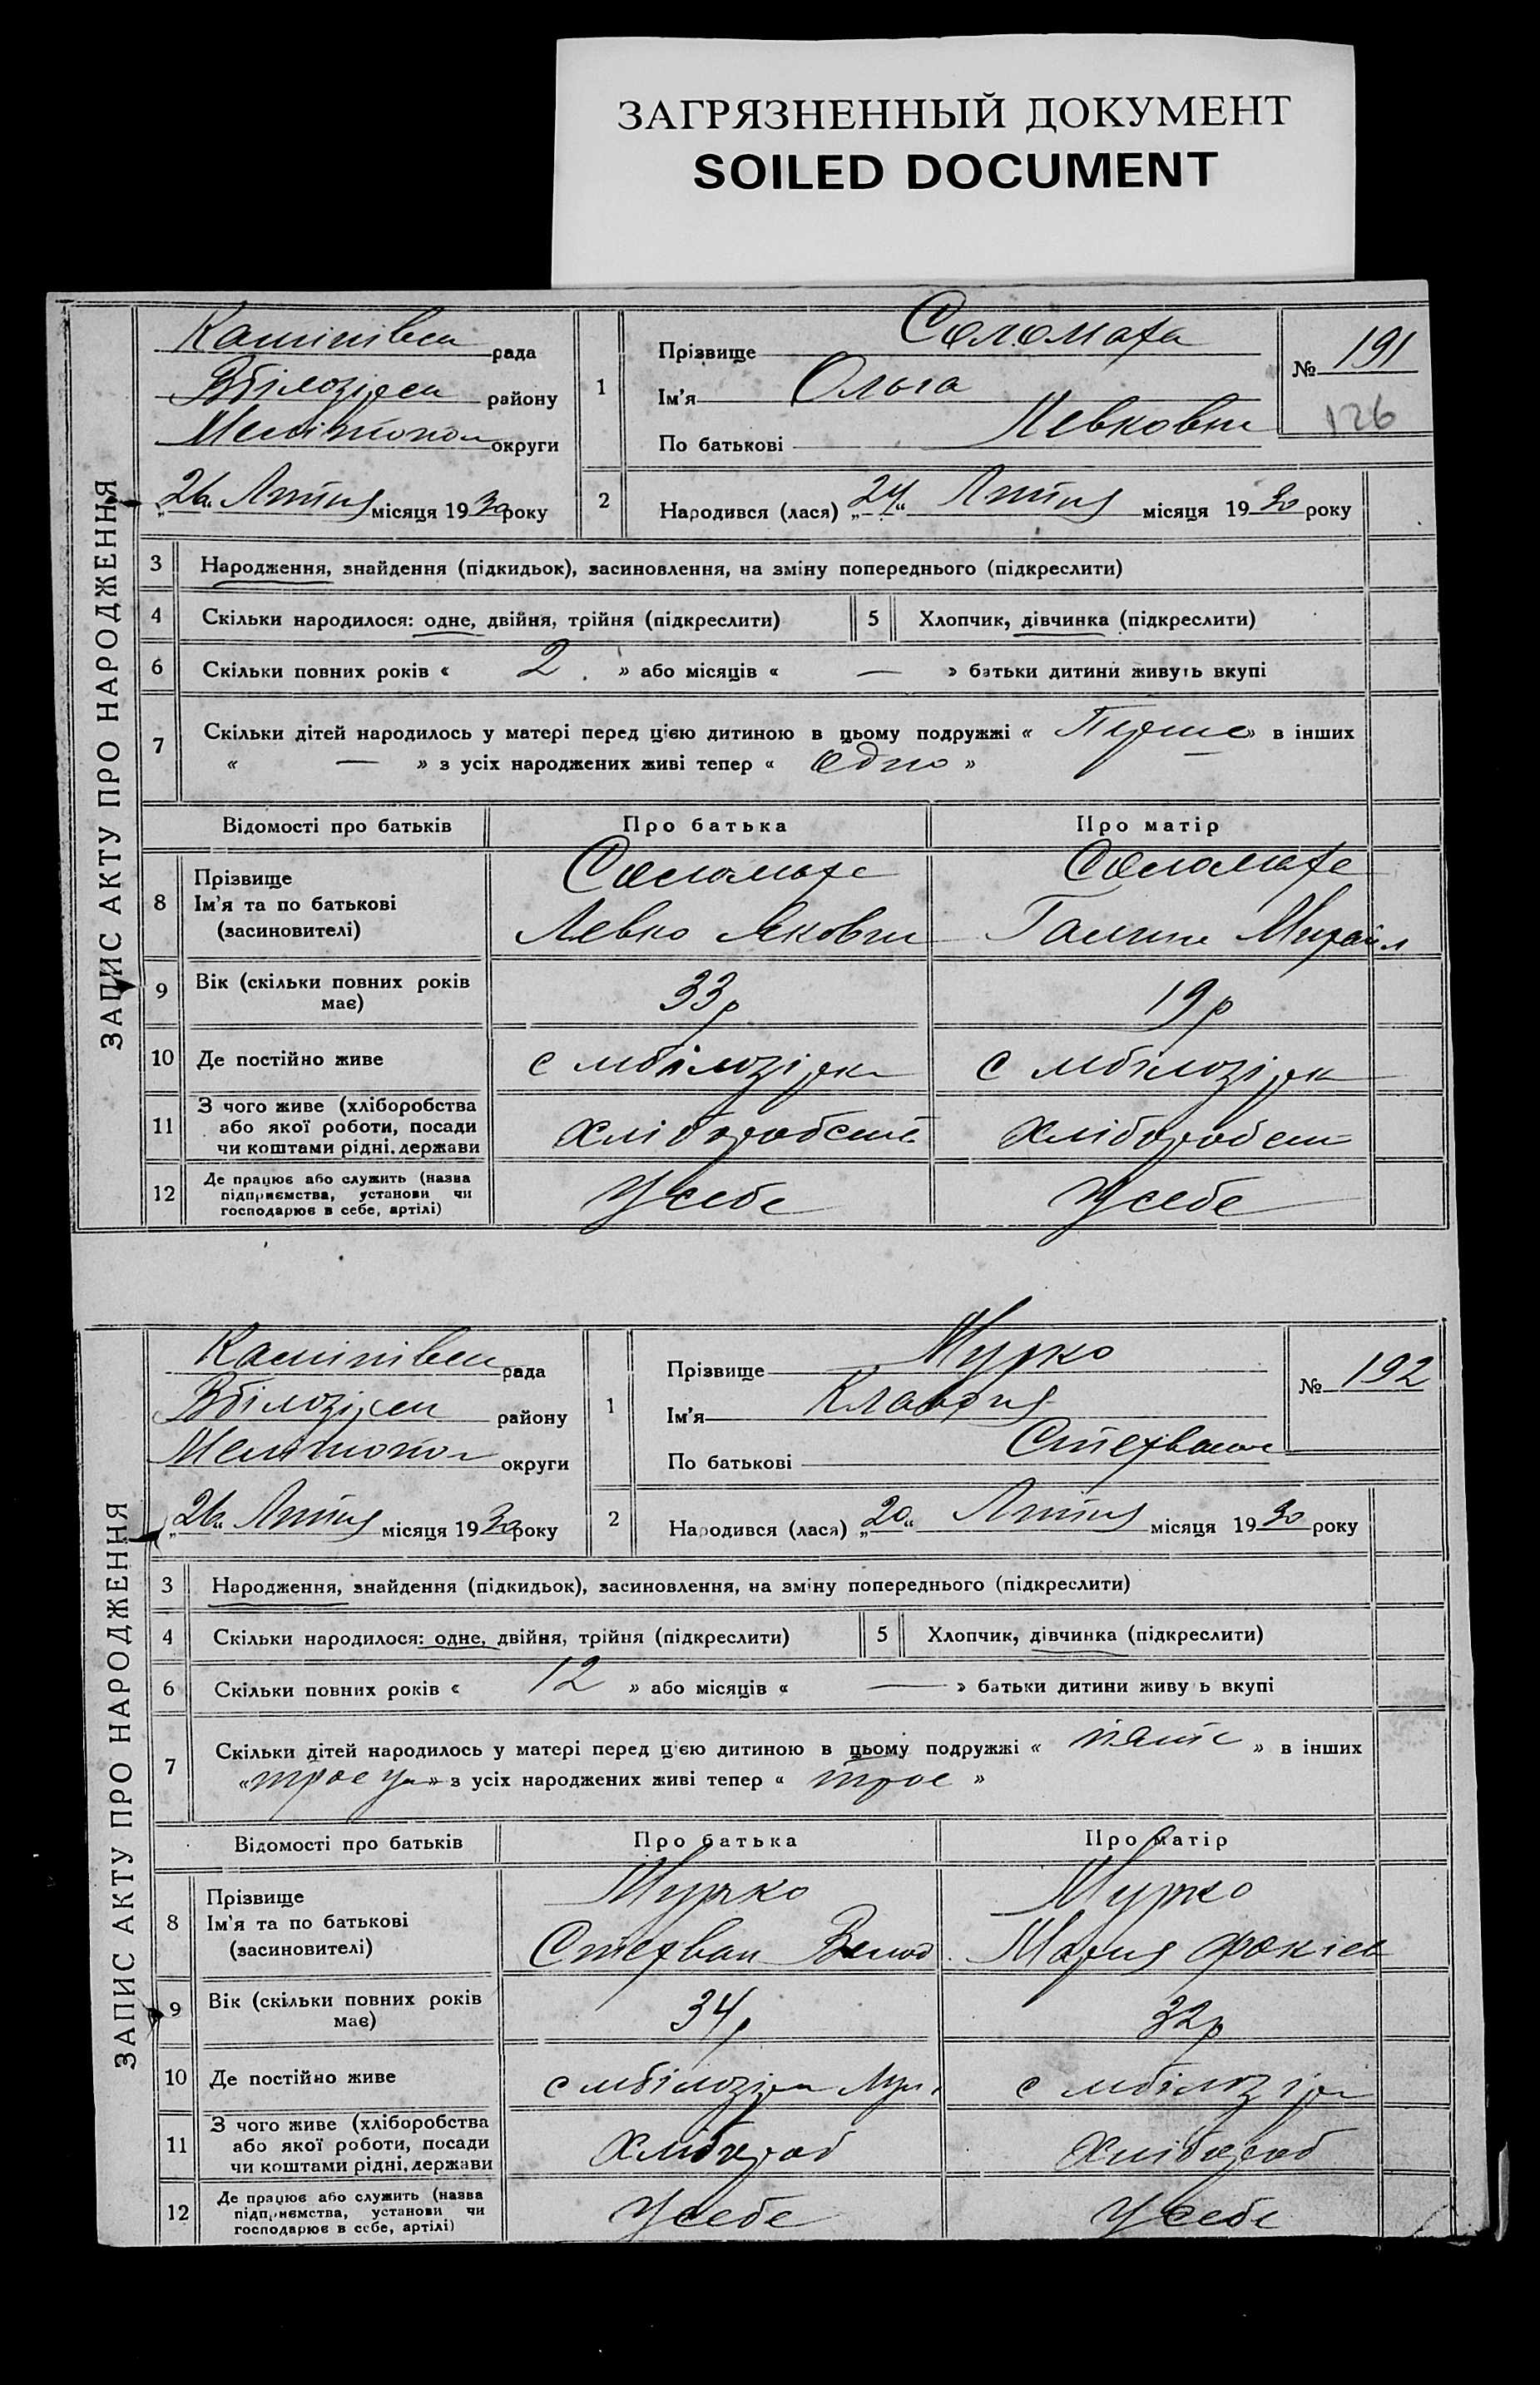 ЗАГРЯЗНЕННЫЙ ДОКУМЕНТ
SOILED DOCUMENT
ЗАПИС АКТУ ПРО НАРОДЖЕННЯ
рада
району
округи
„26“ Лютня місяця 1930 року
1
Прізвище Соломаха
Ім'я Ольга
По батькові Левковна
№ 191
126
2
Народився (лася) „24“ Лютня місяця 1930 року
3 Народження, знайдення (підкидьок), засиновлення, на зміну попереднього (підкреслити)
4 Скільки народилося: одне, двійня, трійня (підкреслити)
5 Хлопчик, дівчинка (підкреслити)
6 Скільки повних років « 2 » або місяців « — » батьки дитини живуть вкупі
7 Скільки дітей народилось у матері перед цією дитиною в цьому подружжі « Перше » в інших
« — » з усіх народжених живі тепер « одно »
Відомості про батьків Про батька Про матір
8 Прізвище
Ім'я та по батькові
(засиновителі)
Соломаха
Левко Яковш
Соломаха
Галина Михайл
9 Вік (скільки повних років
має)
33р
19р
10 Де постійно живе
с мбілозірка
с мбілозірка
11 З чого живе (хліборобства
або якої роботи, посади
чи коштами рідні, держави
Хліборобств
Хліборобст
12 Де працює або служить (назва
підприємства, установи чи
господарює в себе, артілі)
У себе
У себе
ЗАПИС АКТУ ПРО НАРОДЖЕННЯ
рада
району
округи
„26“ Лютня місяця 1930 року
1
Прізвище Мурко
Ім'я Клавдия
По батькові Стехвановн
№ 192
2
Народився (лася) „20“ Лютня місяця 1930 року
3 Народження, знайдення (підкидьок), засиновлення, на зміну попереднього (підкреслити)
4 Скільки народилося: одне, двійня, трійня (підкреслити)
5 Хлопчик, дівчинка (підкреслити)
6 Скільки повних років « 12 » або місяців « — » батьки дитини живуть вкупі
7 Скільки дітей народилось у матері перед цією дитиною в цьому подружжі « пять » в інших
« трое » з усіх народжених живі тепер « трое »
Відомості про батьків Про батька Про матір
8 Прізвище
Ім'я та по батькові
(засиновителі)
Мурко
Стехван
Мурко
Мария Фокіев
9 Вік (скільки повних років
має)
34р
32р
10 Де постійно живе
с мбілозірка
с мбілозірка
11 З чого живе (хліборобства
або якої роботи, посади
чи коштами рідні, держави
Хлібороб
Хлібороб
12 Де працює або служить (назва
підприємства, установи чи
господарює в себе, артілі)
У себе
У себе